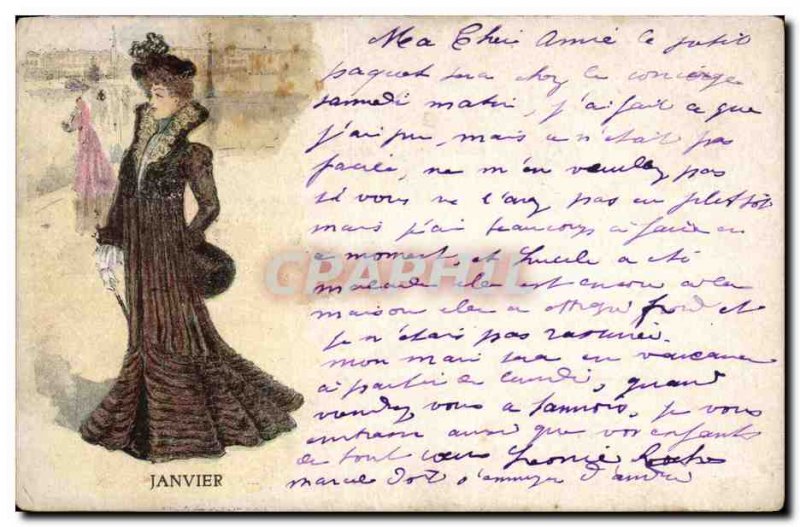 Ma Cher Amie le petit
paquet sera chez la concierge
samedi matin, j'ai fait ce que
j'ai pu, mais ce n'était pas
facile, ne m'en voulez pas
si vous ne l'avez pas eu plus tôt
mais j'ai beaucoup a faire en
ce moment, et Lucile a été
malade elle est encore a la
maison elle a attrapé froid et
je n'étais pas rassurée.
mon mari sera en vacance
a partir de lundi, quand
vendez vous a Sannois, je vous
embrasse ainsi que vos enfants
de tout cœur Leonie
marcel doit s'ennuyer d'andré
JANVIER
CPARHIL